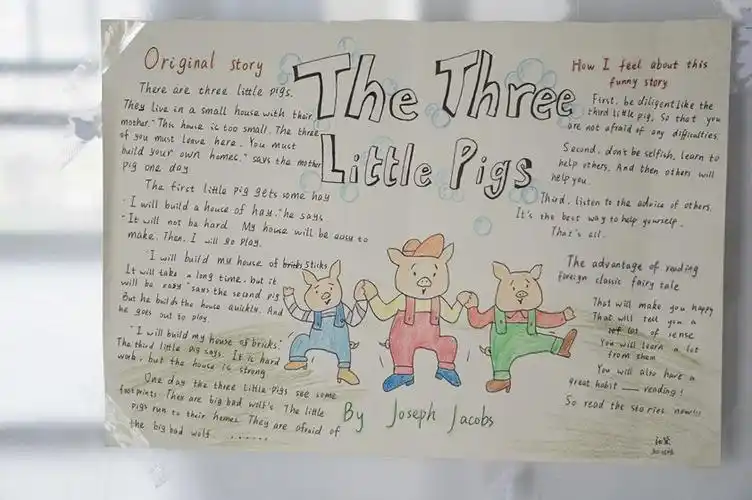 Original story
There are three little pigs.
They live in a small house with their
mother. "This house is too small. The three
of you must leave here. You must
build your own homes." says the mother
pig one day
The first little pig gets some hay
"I will build a house of hay." he says
"It will not be hard. My house will be easy to
make. Then, I will go play.
"I will build my house of bricks sticks
It will take a long time, but it
will be easy" says the second pig
But he builds the house quickly. And
he goes out to play.
"I will build my house of bricks."
The third little pig says. It is hard
work, but the house is strong
One day the three little pigs see some
footprints. They are big bad wolf's. The little
pigs run to their homes. They are afraid of
the big bad wolf. ......
The Three
Little Pigs
By Joseph Jacobs
How I feel about this
funny story
First, be diligent like the
third little pig. So that you
are not afraid of any difficulties.
Second, don't be selfish, learn to
help others. And then others will
help you.
Third, listen to the advice of others.
It's the best way to help yourself.
That's all.
The advantage of reading
foreign classic fairy tale
That will make you happy
That will tell you a
lot of sense
You will learn a lot
from them
You will also have a
great habit — reading!
So read the stories now!!!